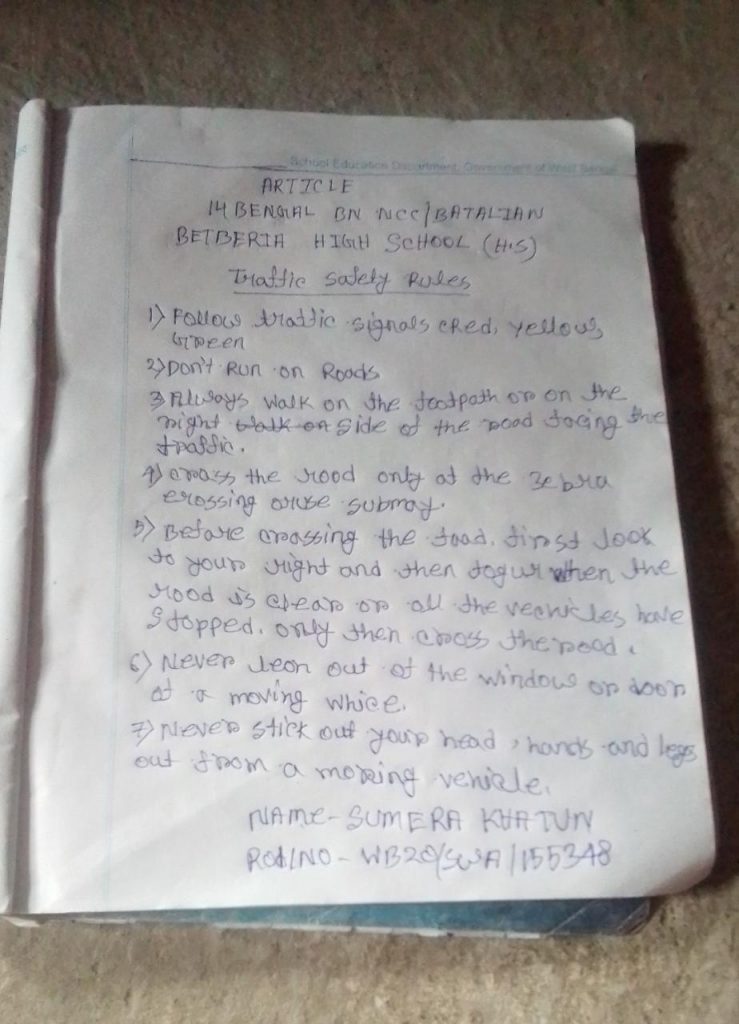 School Education Department, Government of West Bengal
ARTICLE
14 BENGAL BN NCC/BATALIAN
BETBERIA HIGH SCHOOL (H.S)
Traffic Safely Rules
1) Follow traffic signals cRed, yellows
Green
2) Don't Run on Roads
3 Always walk on the footpath or on the
right walk on side of the road facing the
traffic.
4) cross the road only at the zebra
crossing oruse submay.
5) Before crossing the toad. first look
to your right and then when the
road is clear or all the vechicles have
stopped. only then cross the road.
6) Never leon out of the window or door
of a moving whice.
7) Never stick out your head, hands and legs
out from a moving vehicle.
NAME- SUMERA KHATUN
NO- WB20/SWA/155348